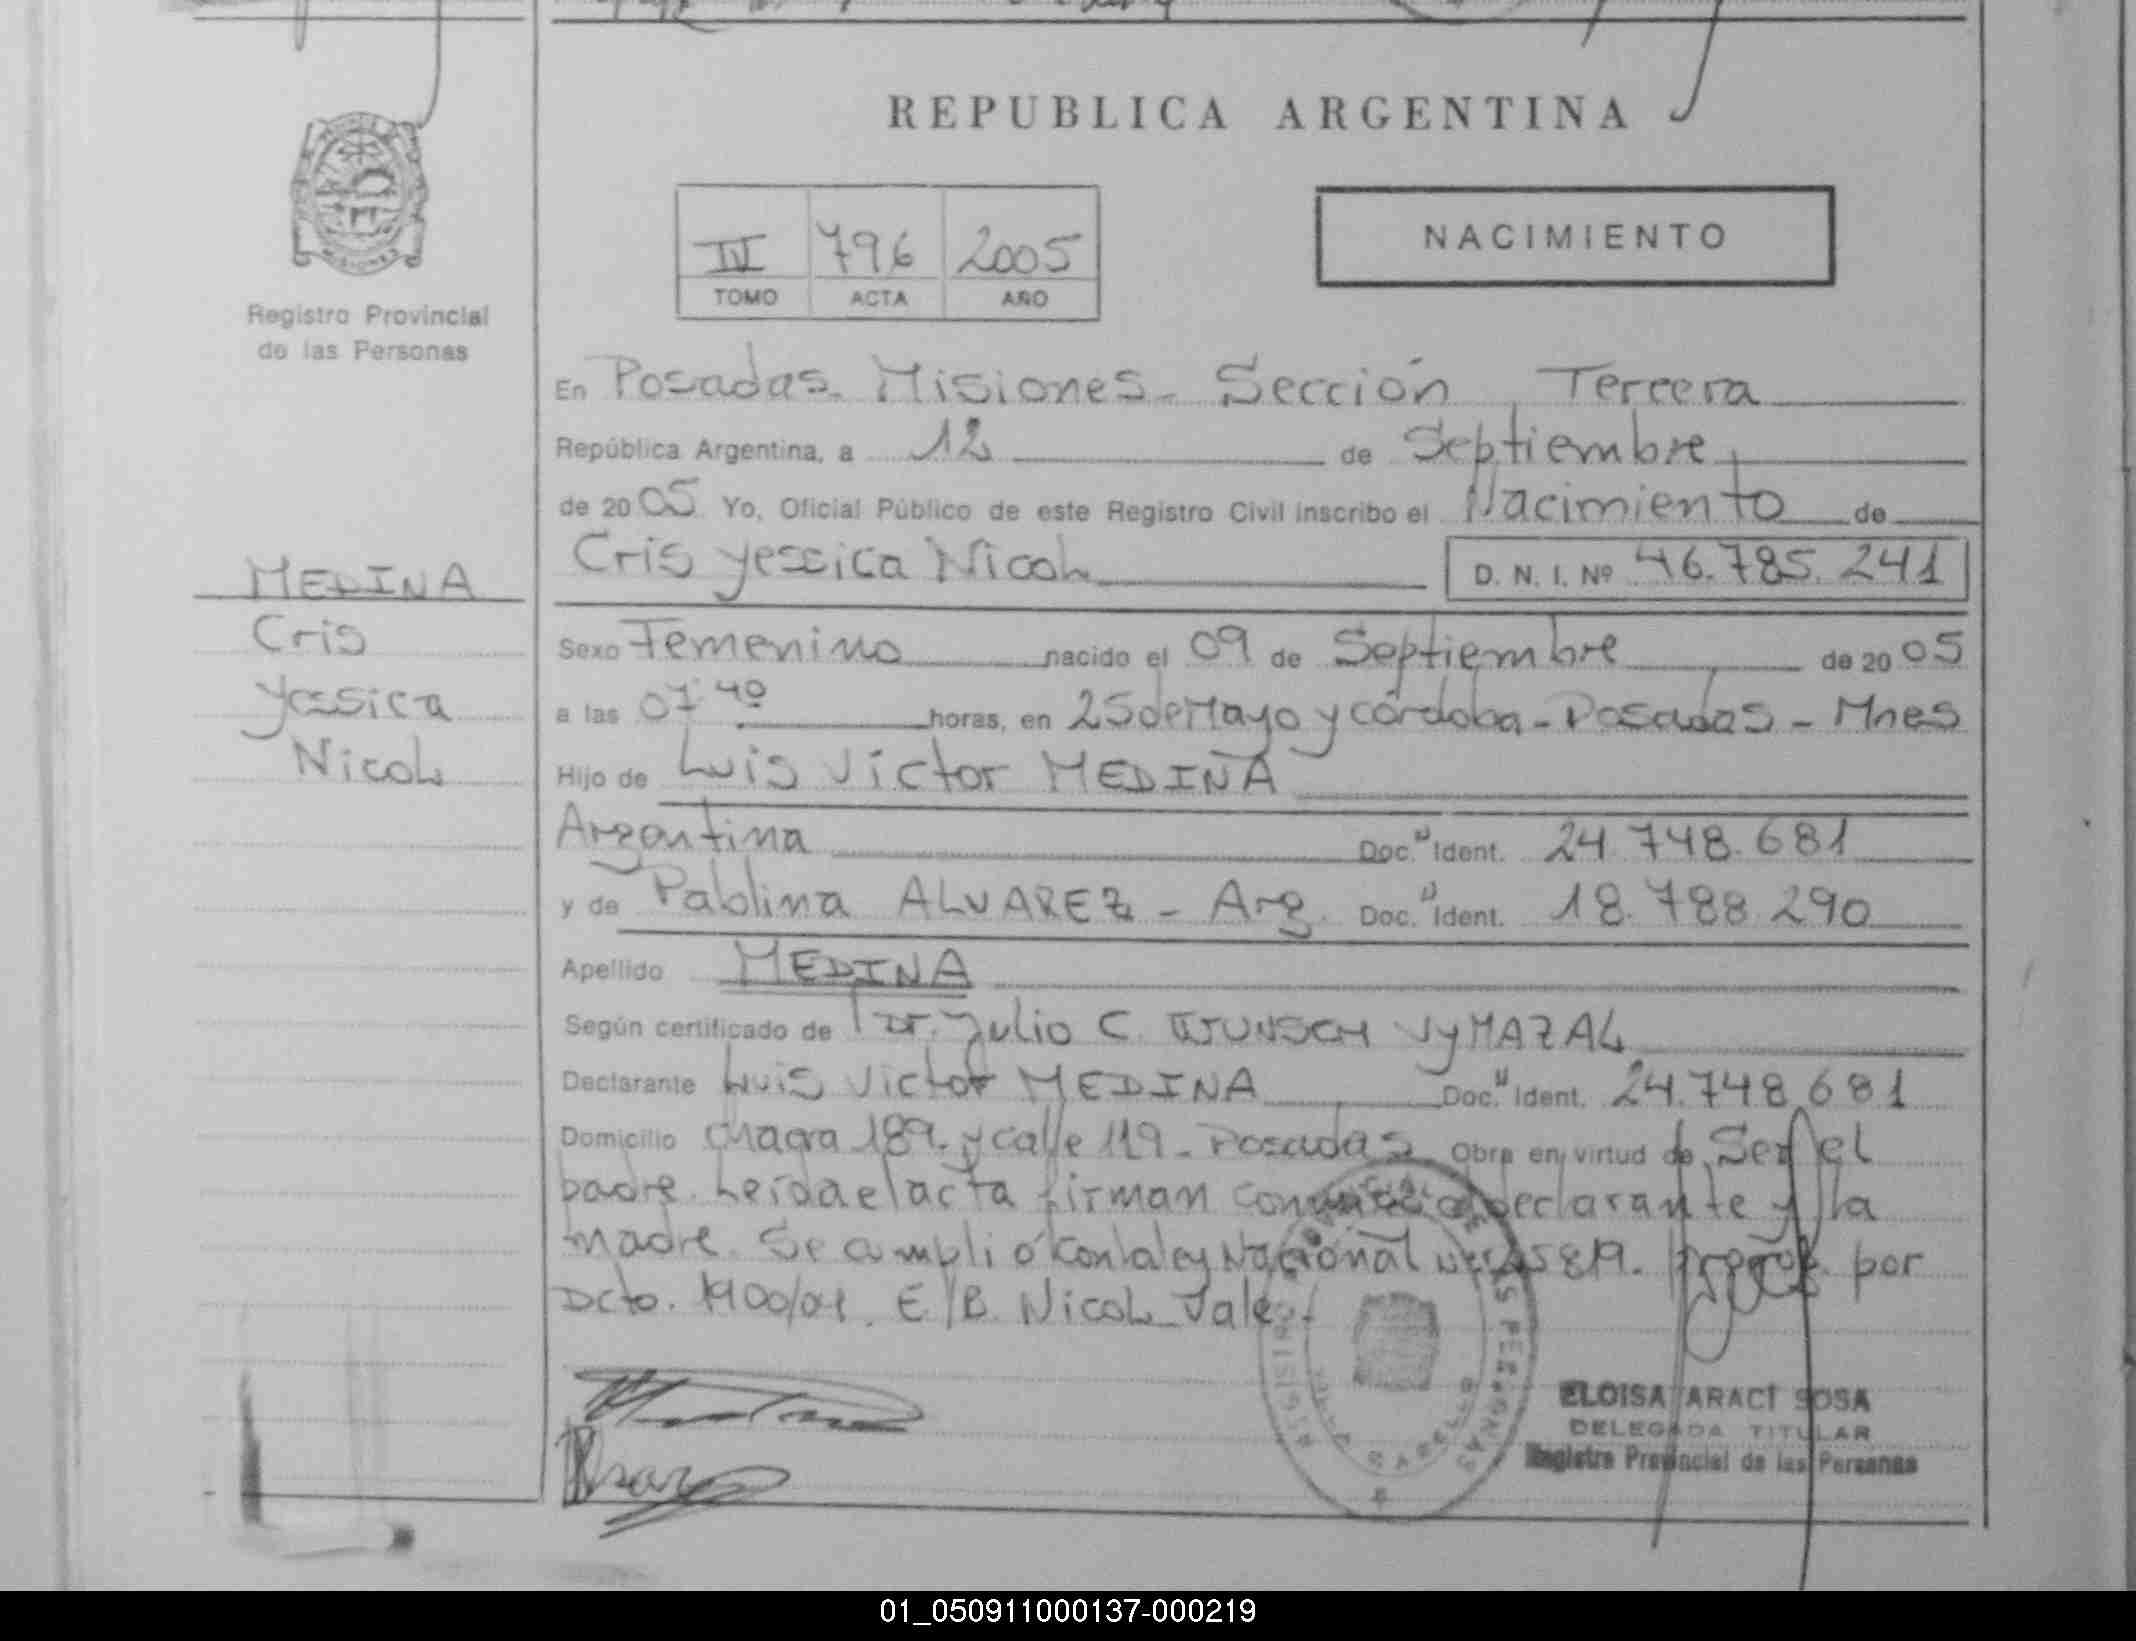 REPUBLICA ARGENTINA
MISIONES
Registro Provincial
de las Personas
NACIMIENTO
IV 796 2005
TOMO ACTA AÑO
En Posadas. Misiones. Sección Tercera
República Argentina, a 12 de Septiembre
de 2005 Yo, Oficial Público de este Registro Civil inscribo el Nacimiento de
Cris Yessica Nicol D. N. I. Nº 46.785.241
MEDINA
Cris
Yessica
Nicol
Sexo Femenino nacido el 09 de Septiembre de 2005
a las 07:40 horas, en 25 de Mayo y córdoba - Posadas - Mnes
Hijo de Luis Victor MEDINA
Argentina Doc. Ident. 24.748.681
y de Pablina ALVAREZ - Arg. Doc. Ident. 18.788.290
Apellido MEDINA
Según certificado de Dr. Julio C. WUNSCH VyMAZAL
Declarante Luis Victor MEDINA Doc. Ident. 24.748.681
Domicilio Chagra 189. y calle 119 - Posadas Obra en virtud de Ser el
padre. Leída el acta firman conmigo declarante y la
madre. Se cumplió con la ley Nacional por
Dcto. 1900/01. E/B. Nicol Vale.
ELOISA ARACI SOSA
DELEGADA TITULAR
Registro Provincial de las Personas
01_050911000137-000219